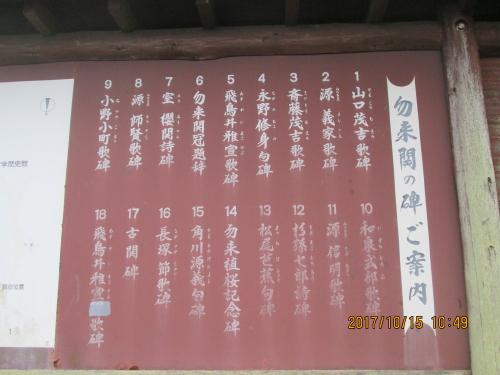 勿来関の碑ご案内
1 山口茂吉歌碑
2 源 義家歌碑
3 斉藤茂吉歌碑
4 永野修身句碑
5 飛鳥井雅宣歌碑
6 勿来関冠題辞
7 室 櫻関詩碑
8 源 師賢歌碑
9 小野小町歌碑
10 和泉式部歌碑
11 源 信明歌碑
12 杉孫七郎詩碑
13 松尾芭蕉句碑
14 勿来植桜記念碑
15 角川源義句碑
16 長塚 節歌碑
17 古関碑
18 飛鳥井雅 歌碑
学歴史館
2017/10/15 10:49